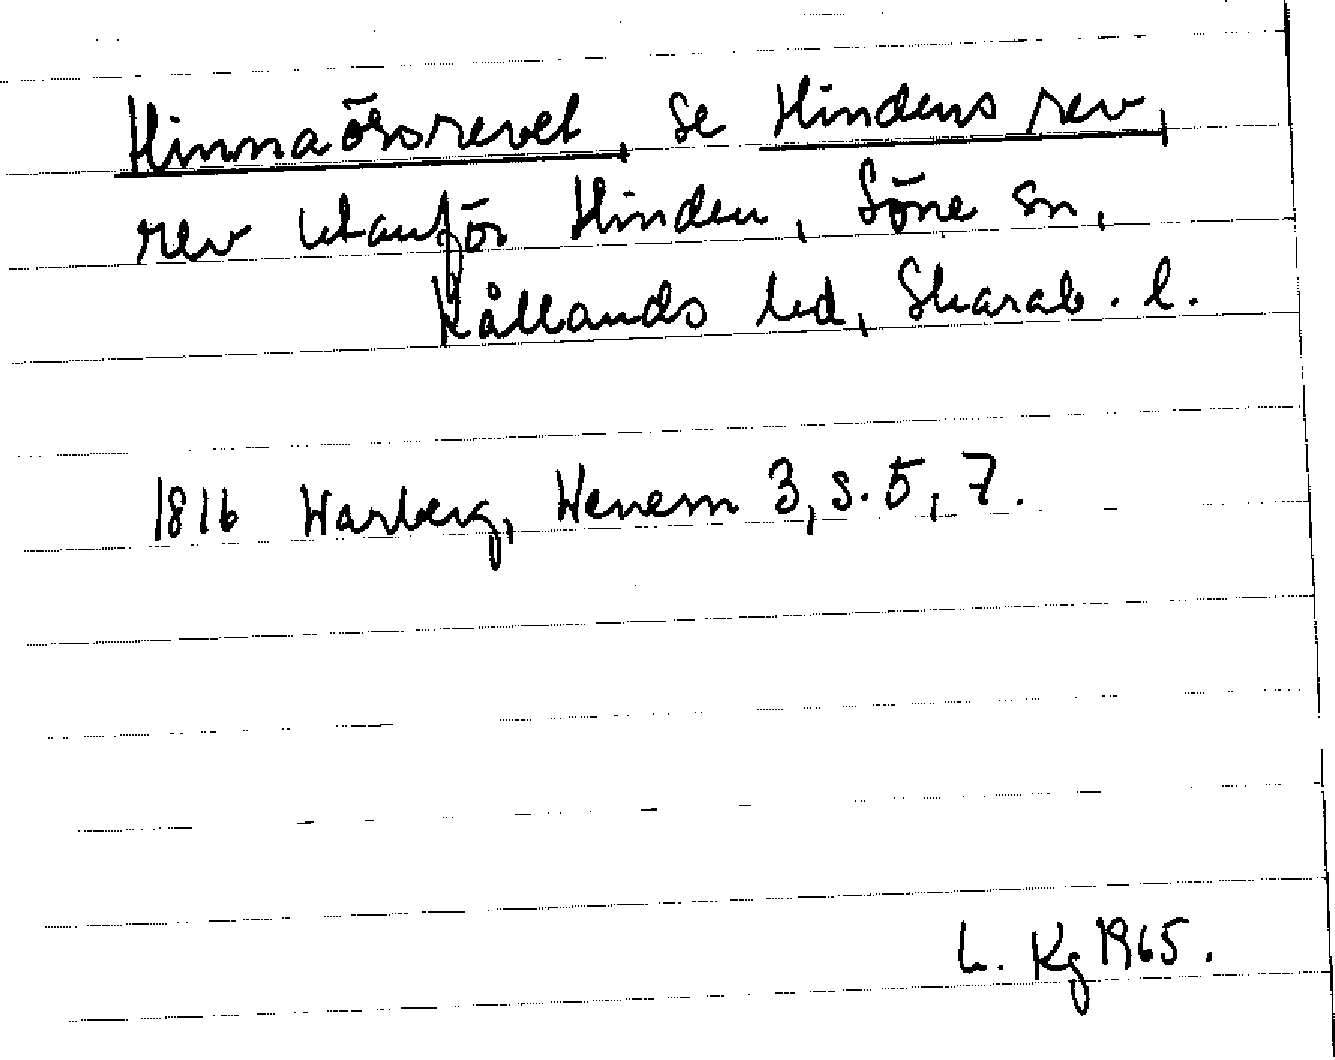 Hinnaörsrevet, se Hindens rev,
rev utanför Hinden, Söne sn,
Kållands hd, Skarab. l.
1816 Warberg, Wenern 3, s. 5, 7.
L. Kg 1965.